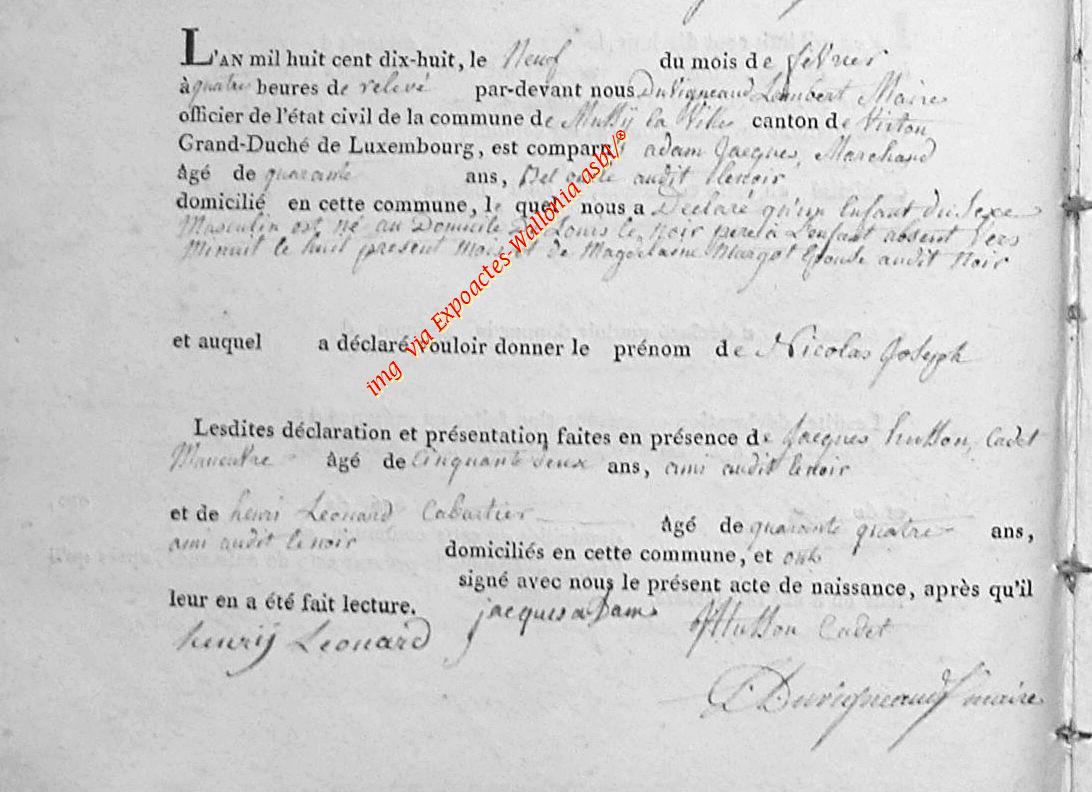 L'AN mil huit cent dix-huit, le Neuf du mois de février
à quatre heures de relevé par-devant nous Duvigneaud Lambert Maire
officier de l'état civil de la commune de Mussÿ la Ville canton de Virton
Grand-Duché de Luxembourg, est comparu adam Jacques, Marchand
âgé de quarante ans, audit lenoir
domicilié en cette commune, le quel nous a Déclaré qu'un Enfant du Sexe
Masculin est né au Domicile De Louis le noir pere à L'enfant absent Vers
Minuit le huit present Mois et de Magdelaine Margot Epouse audit Noir
et auquel a déclaré vouloir donner le prénom de Nicolas Joseph
Lesdites déclaration et présentation faites en présence de Jacques husson, Cadet
âgé de Cinquante deux ans, ami audit lenoir
et de henri Leonard Cabartier âgé de quarante quatre ans,
ami audit lenoir domiciliés en cette commune, et ont
signé avec nous le présent acte de naissance, après qu'il
leur en a été fait lecture.
henrÿ Leonard jacques adam Husson Cadet
Duvigneaud maire
img via Expoactes-Wallonia asbl/®